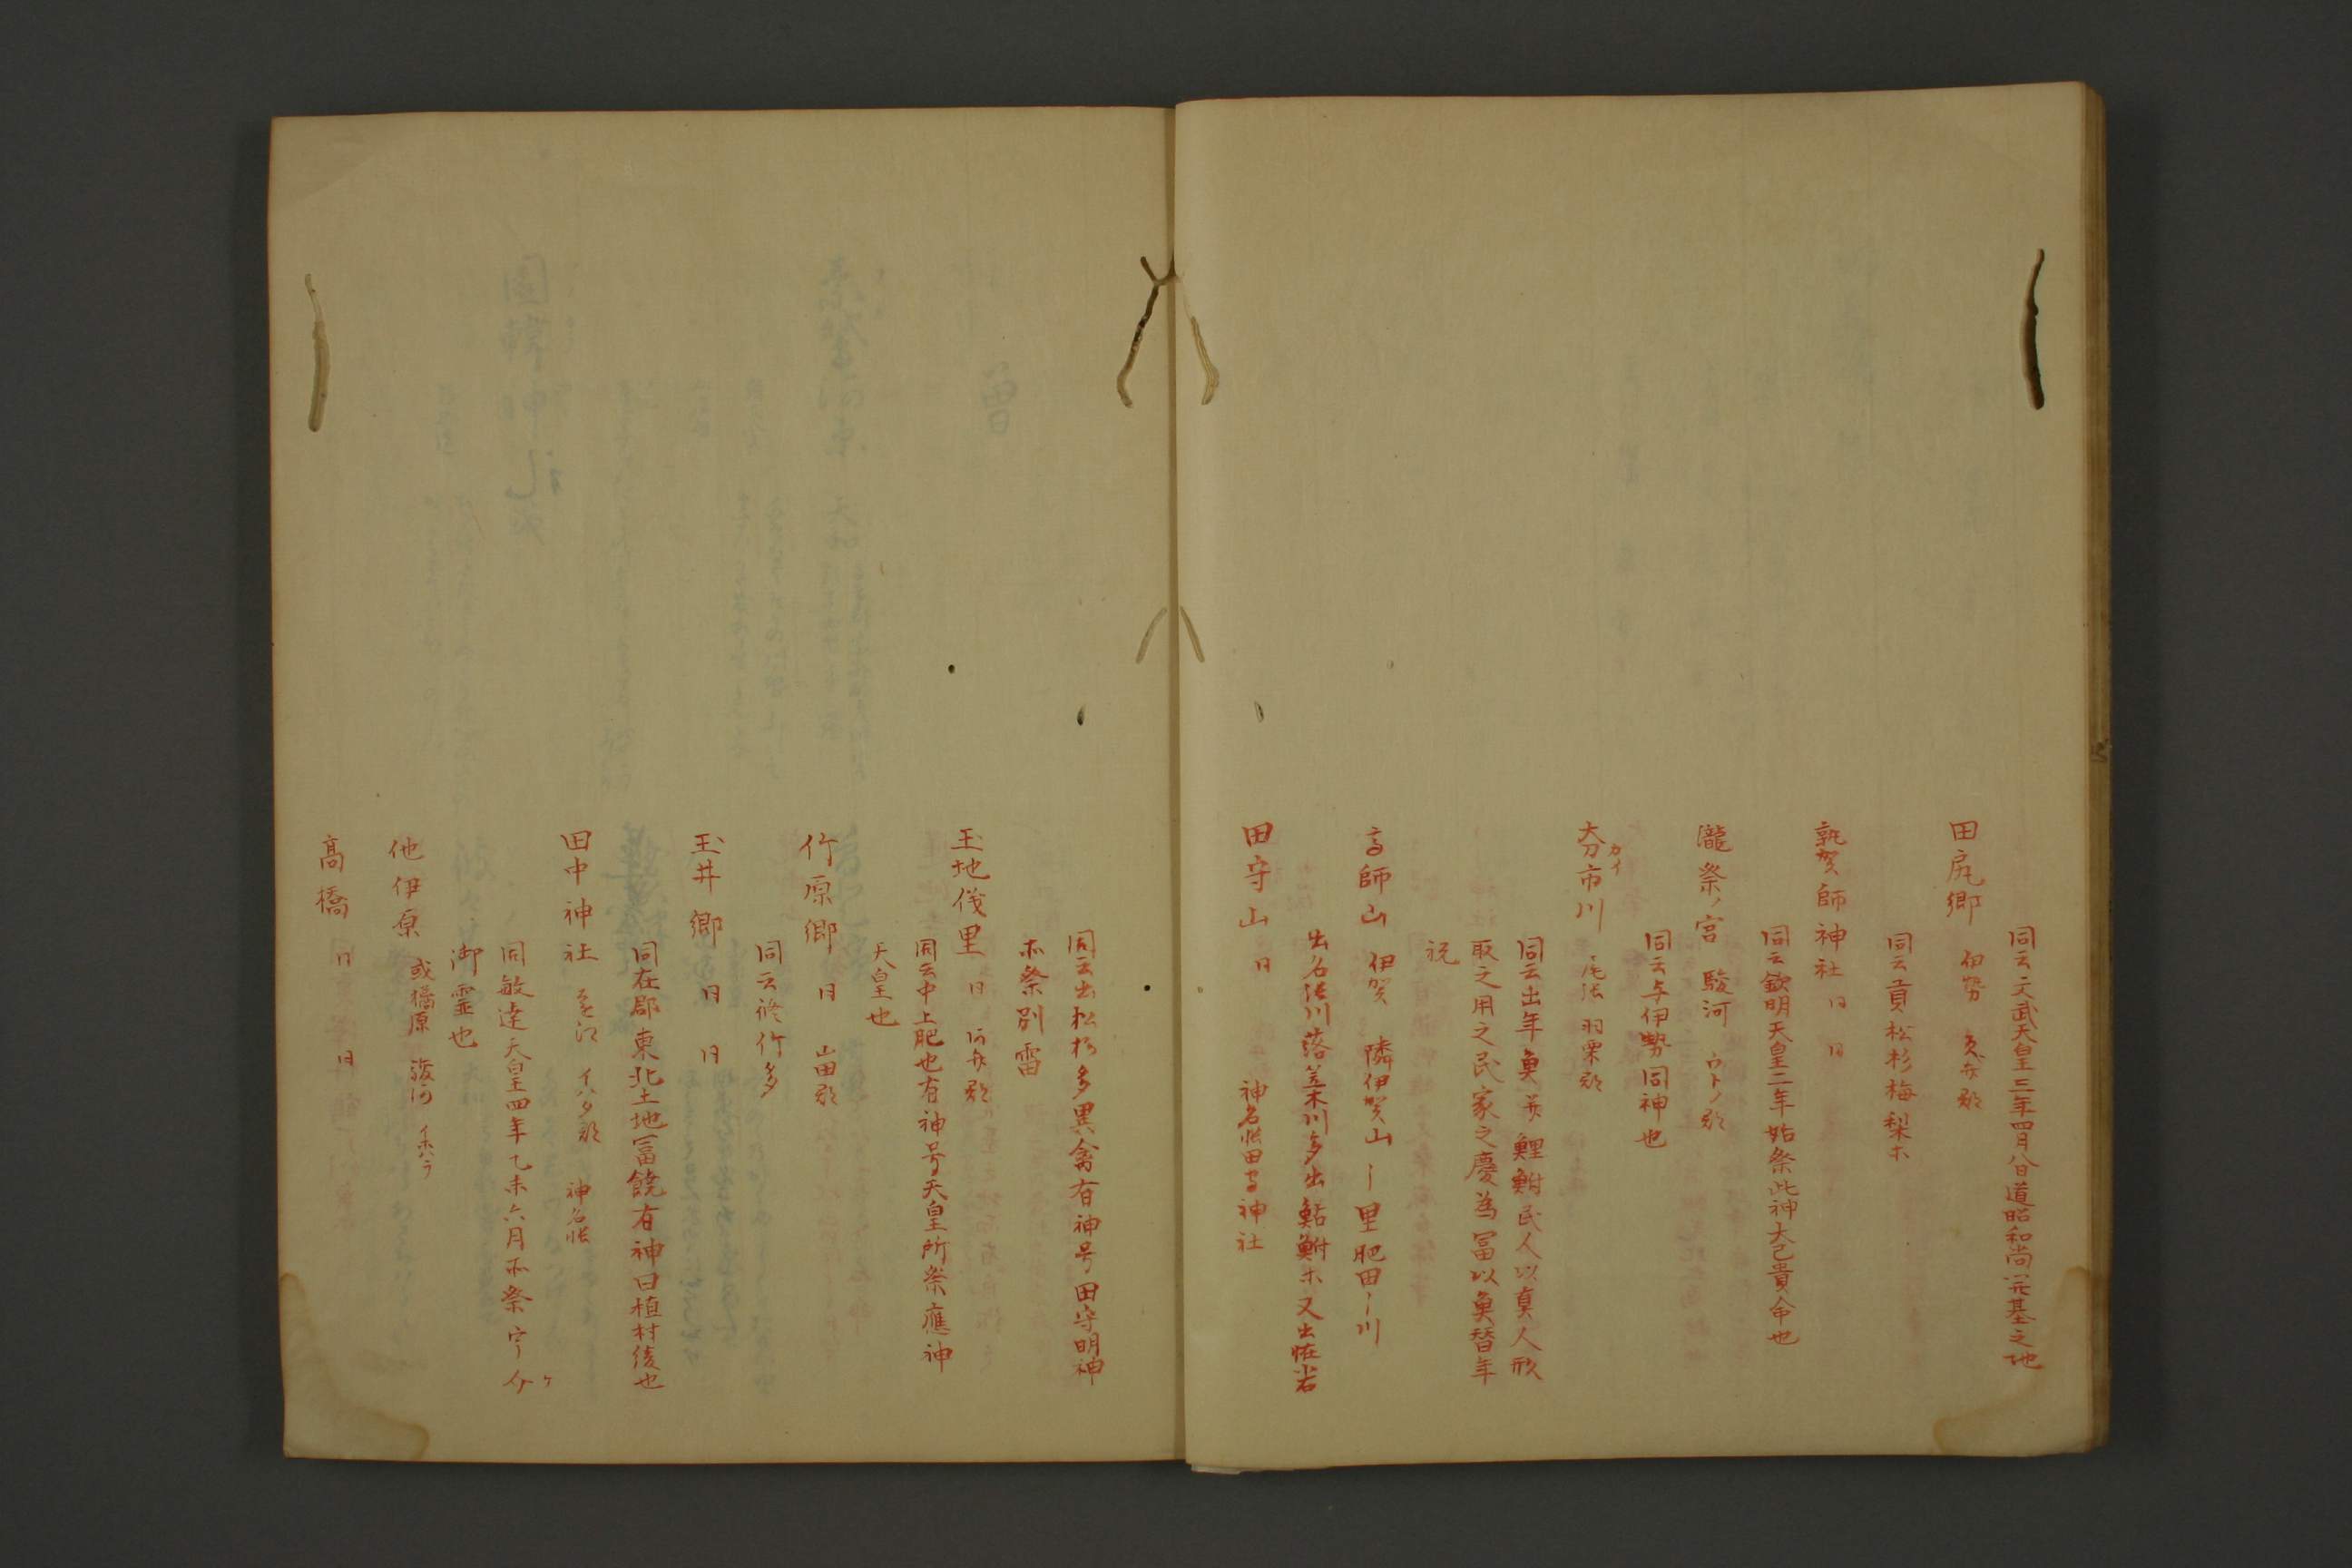 同云文武天皇三年四月八日道昭和尚開基之地
田尻郷 伊勢 員弁郡
同云貢松杉梅梨ホ
師神社 同 同
同云欽明天皇二年始祭此神大己貴命也
瀧祭ノ宮 駿河 ウトノ郡
同云与伊勢同神也
大分市川 尾張 羽栗郡
カイ
同云出年魚并鯉鮒民人以真人形
取之用之民家之慶為冨以魚替年
祝
高師山 伊賀 隣伊賀山 里肥田
出名張川落笠木川多出鮎鮒ホ又出恠岩
田守山 同 神名帳田守神社
同云出松杉多異禽有神号田守明神
祭別雷
玉地伐里 同
同云中上肥也有神号天皇所祭應神
天皇也
竹原郷 同 山田郡
同云修竹多
玉井郷 同 同
同在郡東北土地冨饒有神曰植村
也
田中神社 遠江 イハタ郡 神名帳
同敏達天皇四年乙未六月 祭
御霊也
他伊原 或橘原 駿河 イホハラ
高橋 同 同